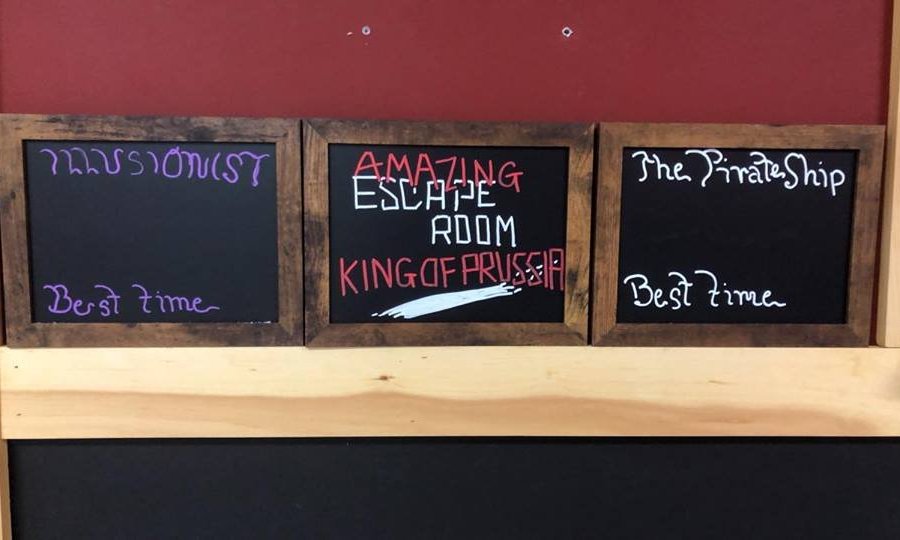 ILLUSIONIST
Best Time
AMAZING
ESCAPE
ROOM
KING OF PRUSSIA
The Pirate Ship
Best Time